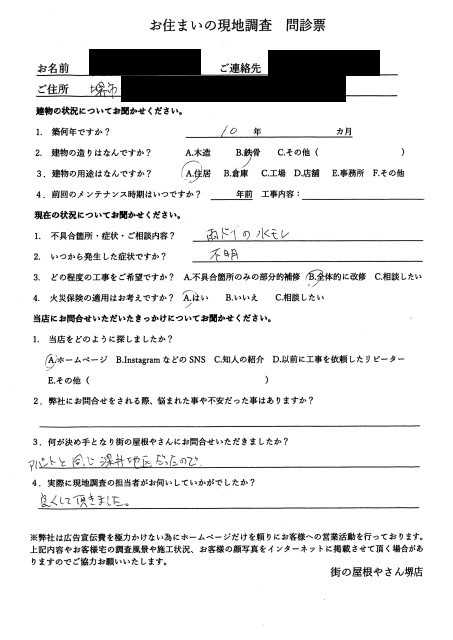 お住まいの現地調査　問診票
お名前　ご連絡先
ご住所　堺市
建物の状況についてお聞かせください。
1.　築何年ですか？　10　年　カ月
2.　建物の造りはなんですか？　A.木造　B.鉄骨　C.その他（　）
3．建物の用途はなんですか？　A.住居　B.倉庫　C.工場　D.店舗　E.事務所　F.その他
4．前回のメンテナンス時期はいつですか？　年前　工事内容：
現在の状況についてお聞かせください。
1.　不具合箇所・症状・ご相談内容？　雨ドイの水モレ
2.　いつから発生した症状ですか？　不明
3.　どの程度の工事をご希望ですか？　A.不具合箇所のみの部分的補修　B.全体的に改修　C.相談したい
4.　火災保険の適用はお考えですか？　A.はい　B.いいえ　C.相談したい
当店にお問合せいただいたきっかけについてお聞かせください。
1.　当店をどのように探しましたか？
A.ホームページ　B.InstagramなどのSNS　C.知人の紹介　D.以前に工事を依頼したリピーター
E.その他（　）
2．弊社にお問合せをされる際、悩まれた事や不安だった事はありますか？
3．何が決め手となり街の屋根やさんにお問合せいただきましたか？
アパートと同じ深井地区だったので
4．実際に現地調査の担当者がお伺いしていかがでしたか？
良くして頂きました。
※弊社は広告宣伝費を極力かけない為にホームページだけを頼りにお客様への営業活動を行っております。
上記内容やお客様宅の調査風景や施工状況、お客様の顔写真をインターネットに掲載させて頂く場合があ
りますのでご協力お願いいたします。
街の屋根やさん堺店